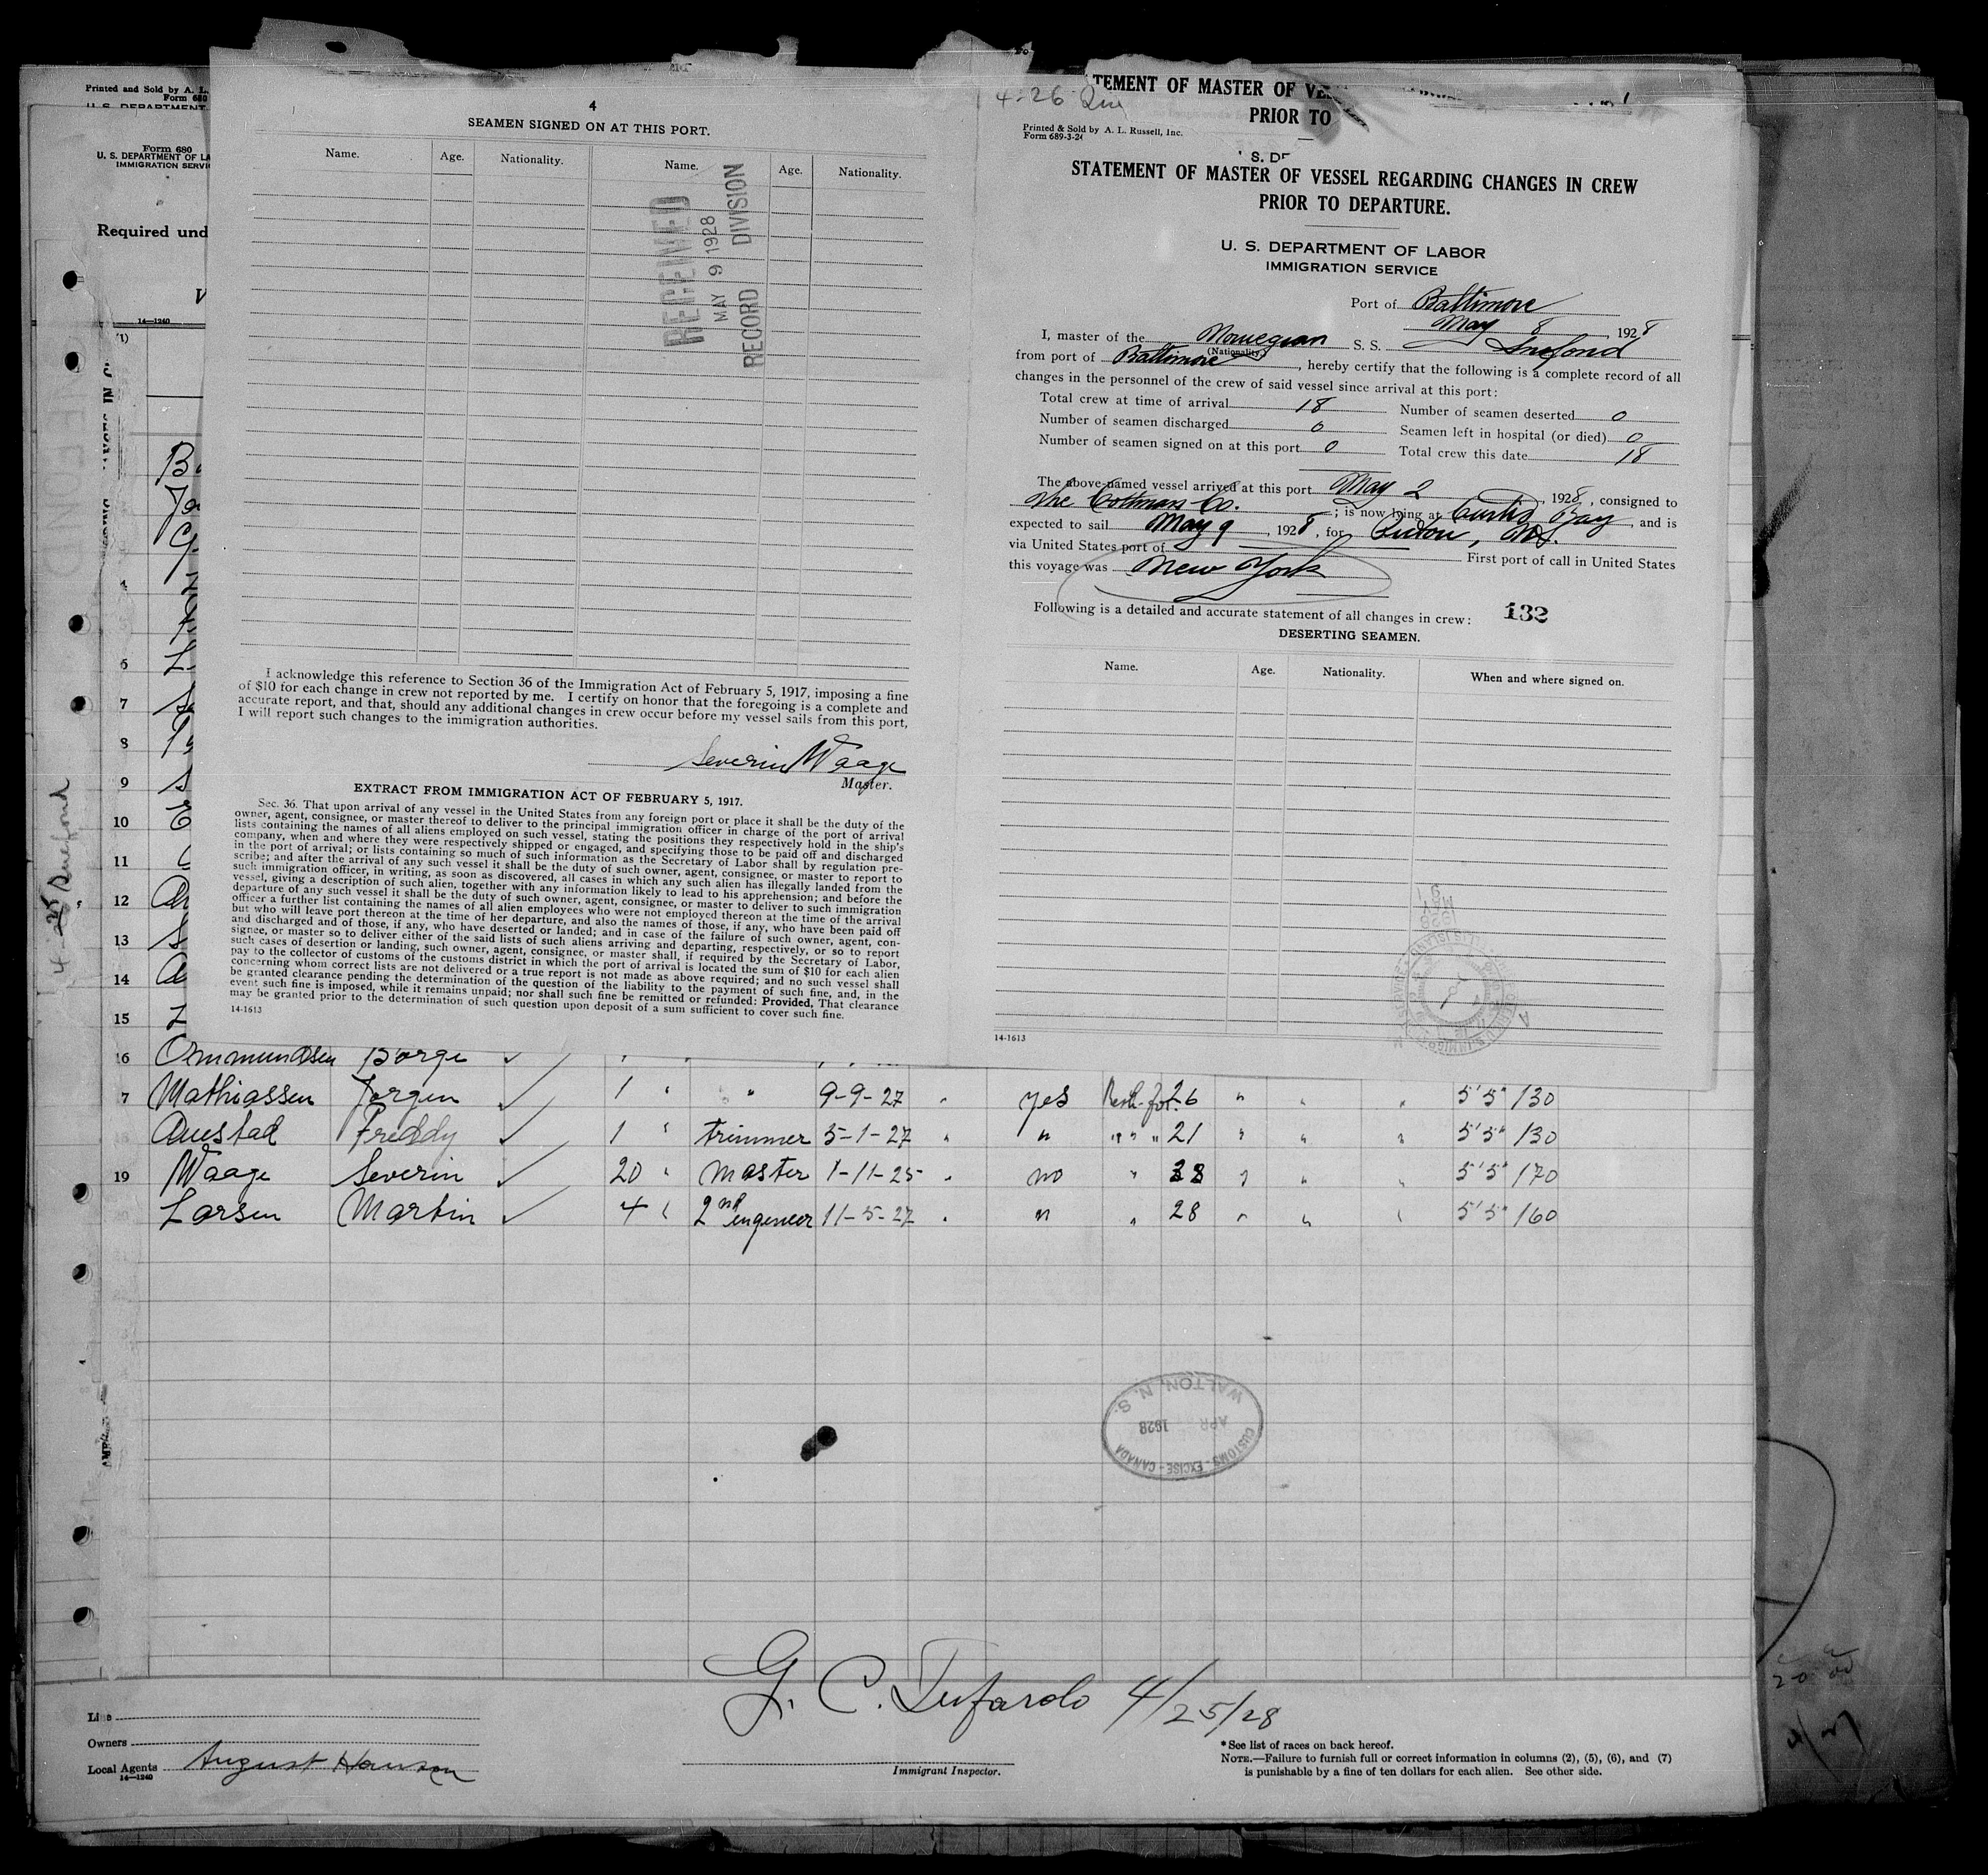 Printed and Sold by A. L.
Form 680
U. S. DEPARTMENT
Form 680
U. S. DEPARTMENT OF LA
IMMIGRATION SERVI
Required und
V
14—1240
4
SEAMEN SIGNED ON AT THIS PORT.
Name. Age. Nationality. Name. Age. Nationality.
RECEIVED
MAY 9 1928
RECORD DIVISION
I acknowledge this reference to Section 36 of the Immigration Act of February 5, 1917, imposing a fine
of $10 for each change in crew not reported by me. I certify on honor that the foregoing is a complete and
accurate report, and that, should any additional changes in crew occur before my vessel sails from this port,
I will report such changes to the immigration authorities.
Severin Waage
Master.
EXTRACT FROM IMMIGRATION ACT OF FEBRUARY 5, 1917.
Sec. 36. That upon arrival of any vessel in the United States from any foreign port or place it shall be the duty of the
owner, agent, consignee, or master thereof to deliver to the principal immigration officer in charge of the port of arrival
lists containing the names of all aliens employed on such vessel, stating the positions they respectively hold in the ship's
company, when and where they were respectively shipped or engaged, and specifying those to be paid off and discharged
in the port of arrival; or lists containing so much of such information as the Secretary of Labor shall by regulation pre-
scribe; and after the arrival of any such vessel it shall be the duty of such owner, agent, consignee, or master to report to
such immigration officer, in writing, as soon as discovered, all cases in which any such alien has illegally landed from the
vessel, giving a description of such alien, together with any information likely to lead to his apprehension; and before the
departure of any such vessel it shall be the duty of such owner, agent, consignee, or master to deliver to such immigration
officer a further list containing the names of all alien employees who were not employed thereon at the time of the arrival
but who will leave port thereon at the time of her departure, and also the names of those, if any, who have been paid off
and discharged and of those, if any, who have deserted or landed; and in case of the failure of such owner, agent, con-
signee, or master so to deliver either of the said lists of such aliens arriving and departing, respectively, or so to report
such cases of desertion or landing, such owner, agent, consignee, or master shall, if required by the Secretary of Labor,
pay to the collector of customs of the customs district in which the port of arrival is located the sum of $10 for each alien
concerning whom correct lists are not delivered or a true report is not made as above required; and no such vessel shall
be granted clearance pending the determination of the question of the liability to the payment of such fine, and, in the
event such fine is imposed, while it remains unpaid; nor shall such fine be remitted or refunded: Provided, That clearance
may be granted prior to the determination of such question upon deposit of a sum sufficient to cover such fine.
14-1613
TEMENT OF MASTER OF VE
PRIOR TO
4-26
Printed & Sold by A. L. Russell, Inc.
Form 689-3-24
S. DE
STATEMENT OF MASTER OF VESSEL REGARDING CHANGES IN CREW
PRIOR TO DEPARTURE.
U. S. DEPARTMENT OF LABOR
IMMIGRATION SERVICE
Port of Baltimore
May 8, 1928
I, master of the Norwegian S. S. Snefond
(Nationality)
from port of Baltimore, hereby certify that the following is a complete record of all
changes in the personnel of the crew of said vessel since arrival at this port:
Total crew at time of arrival 18 Number of seamen deserted 0
Number of seamen discharged 0 Seamen left in hospital (or died) 0
Number of seamen signed on at this port 0 Total crew this date 18
The above-named vessel arrived at this port May 2, 1928, consigned to
The Cottman Co.; is now lying at Curtis Bay, and is
expected to sail May 9, 1928, for
via United States port of First port of call in United States
this voyage was New York
Following is a detailed and accurate statement of all changes in crew: 132
DESERTING SEAMEN.
Name. Age. Nationality. When and where signed on.
14-1613
6
7
8
9
10
11
12
13
14
15
16 Ommundsen Borge
7 Mathiassen Jorgen 1 " " 9-9-27 " yes 26 " " " 5'5" 130
Austad Freddy 1 " trimmer 5-1-27 " " " " " 21 " " " 5'5" 130
19 Waage Severin 20 " master 1-11-25 " no " 38 " " " 5'5" 170
20 Larsen Martin 4 " 2nd engeneer 11-5-27 " " " 28 " " " 5'5" 160
WALTON, N. S.
APR 1928
CUSTOMS-EXCISE-CANADA
G. C. Tufarolo 4/25/28
Line
Owners
Local Agents August Hansen
14—1240
Immigrant Inspector.
*See list of races on back hereof.
NOTE.—Failure to furnish full or correct information in columns (2), (5), (6), and (7)
is punishable by a fine of ten dollars for each alien. See other side.